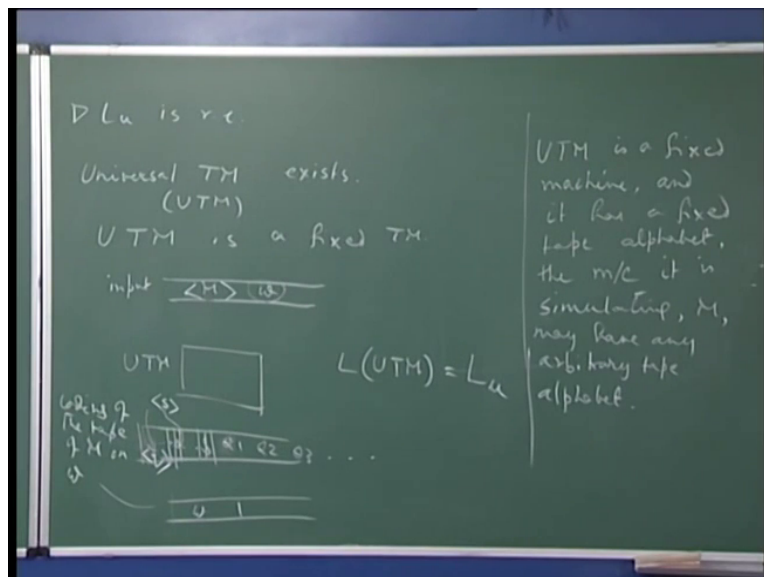 ▷ Lu is r.e.
Universal TM exists.
(UTM)
UTM is a fixed TM
input <M> w
UTM
L(UTM) = Lu
coding of <s>
the tape
of M on
w
a1 a2 a3 ...
UTM is a fixed
machine, and
it has a fixed
tape alphabet,
the m/c it is
simulating, M,
may have any
arbitrary tape
alphabet.